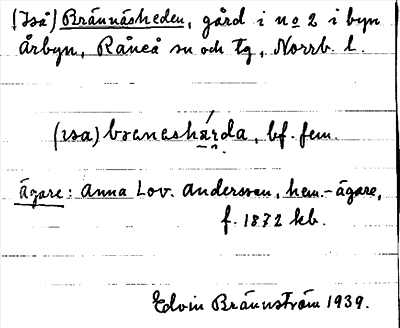 (Isä) Brännäsheden, gård i no 2 i byn
Årbyn, Råneå sn och tg, Norrb. l.
(ɪsa) branashárda, bf. fem.
Ägare: Anna Lov. Andersson, hem.-ägare,
f. 1872 kb.
Edvin Brännström 1939.